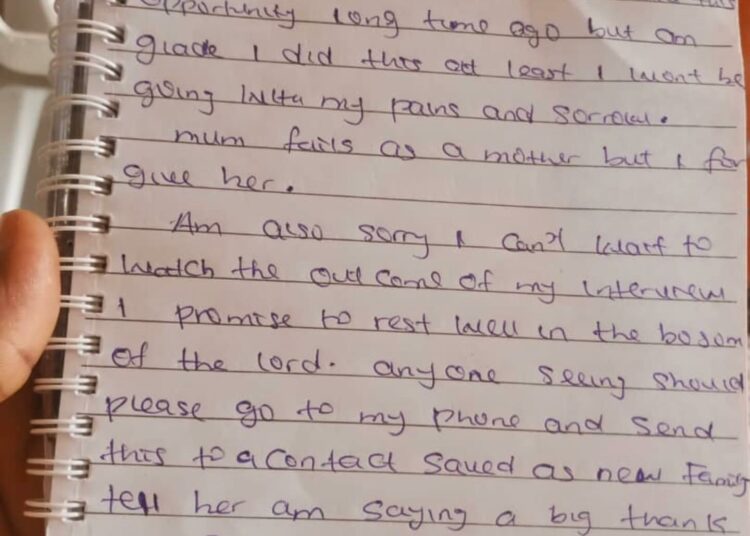 opportunity long time ago but am
glade I did this att least I wont be
going with my pains and sorrow.
mum fails as a mother but I for
give her.
Am also sorry I can't wait to
watch the out come of my interview
I promise to rest well in the bosom
of the lord. anyone seeing should
please go to my phone and send
this to a contact saved as new Family
tell her am saying a big thanks